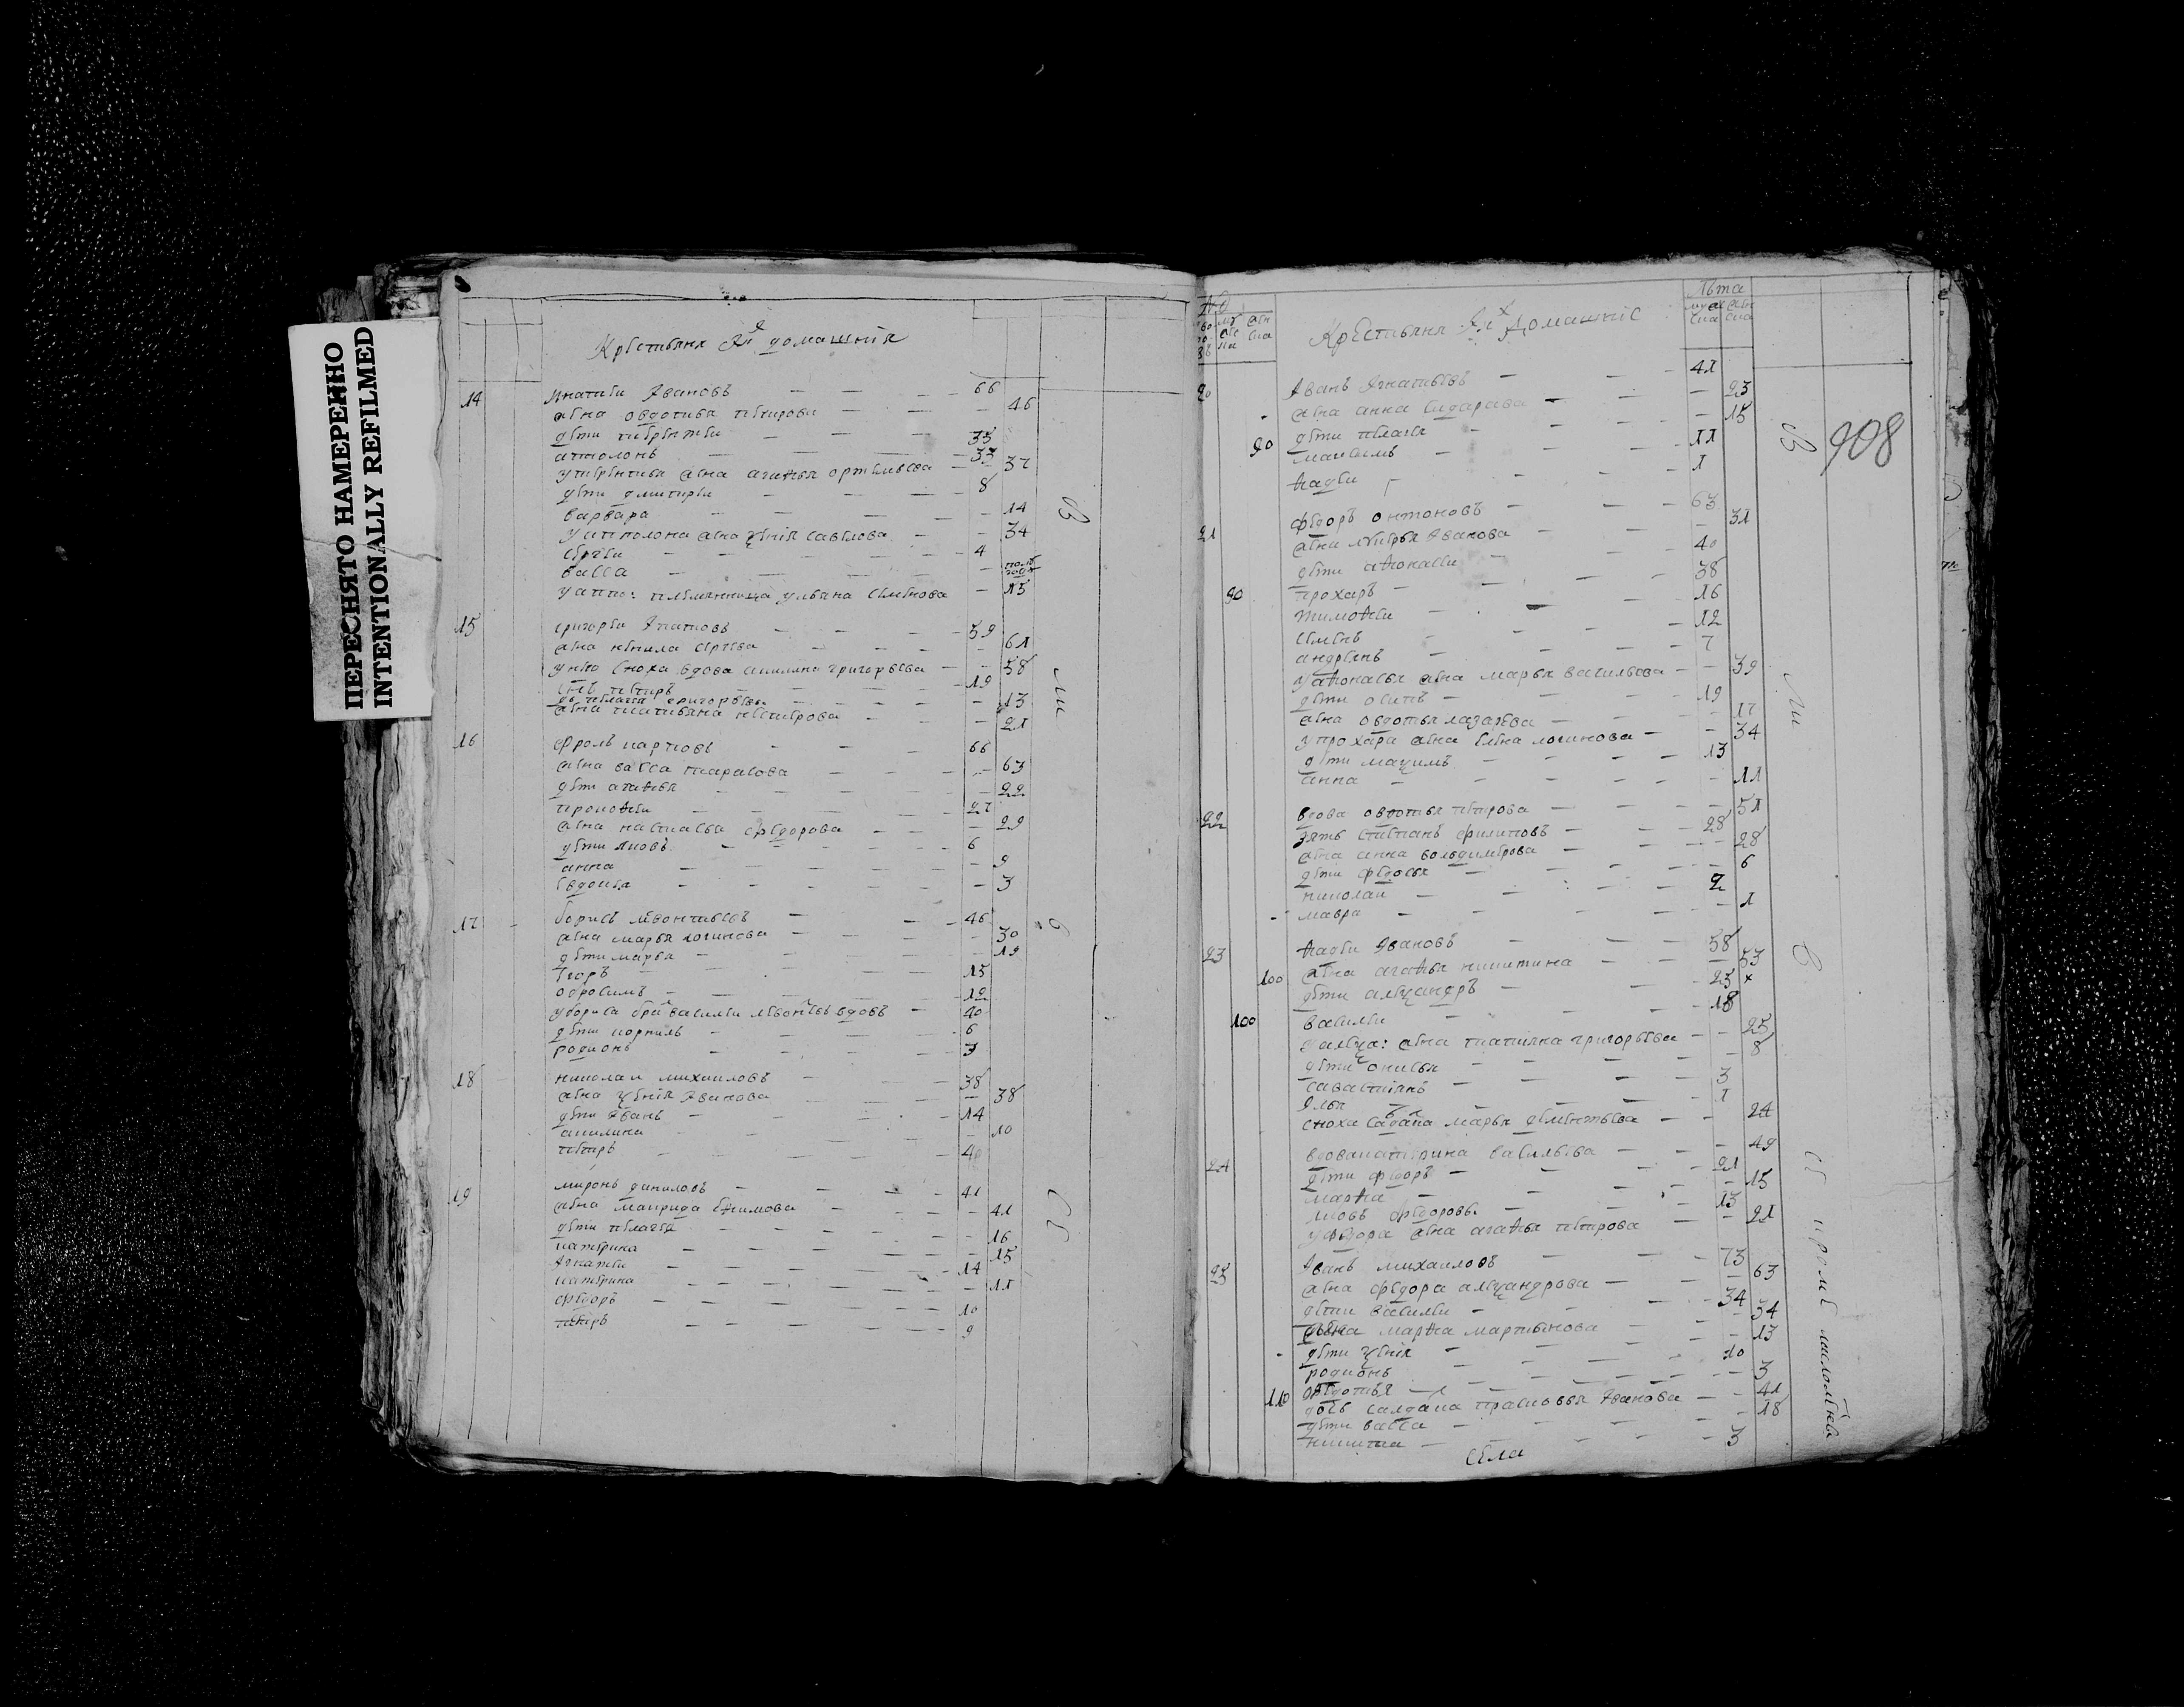 ПЕРЕСНЯТО НАМЕРЕННО
INTENTIONALLY REFILMED
Крестьяня Их домашния
14 Игнатеи Ивановъ 66
жена овдотия петрова 46
дети терентеи 35
апполонъ 33
у терентия жена агафья ортемьева 37
дети дмитреи 8
варвара 14
у апполона жена ѯения савелова 34
сергеи 4
васса полъ года
у аппо: племянница ульяна семенова 15
15 григореи Ипатовъ 59
жена ненила сергева 61
у него сноха вдова акилина григорьева 58
снъ петръ 19
дъ пелагея григорьева 13
жена татьяна нестерова 21
16 фролъ карповъ 66
жена васса тарасова 63
дети агафья 22
прокофеи 27
жена настасья федорова 29
дети яковъ 6
анна 9
евдокея 3
17 борисъ левонтьевъ 46
жена марья логинова 30
дети марья 19
Егоръ 15
обросимъ 12
у бориса братъ василеи левонтьевъ вдовъ 40
дети корнилъ 6
родионъ 3
18 николаи михаиловъ 38
жена ѯения Иванова 38
дети Иванъ 14
акилина 10
петръ 40
19 миронъ даниловъ 41
жена маирида ефимова 41
дети пелагея 16
катерина 15
Игнатеи 14
катерина 11
федоръ 10
петръ 9
Крестьяня Их домашние
Лета
908
20 Иванъ Игнатьевъ 41
жена анна сидарава 23
дети пелагея 15
90 максимъ 11
фадеи 1
21 федоръ онтоновъ 63
жена мавра Иванова 31
дети афонасеи 40
90 прохаръ 38
тимофеи 16
семенъ 12
андреянъ 7
у афонасья жена марья васильева 39
дети осипъ 19
жена овдотья лазарева 17
у прохара жена елена логинова 34
дети маѯимъ 13
анна 11
22 вдова овдотья петрова 51
зять степанъ филиповъ 28
жена анна вольдимерова 28
дети федосья 6
николаи 2
мавра 1
23 фадеи Ивановъ 58
100 жена агафья никитина 53
дети алеѯандръ 23
100 василеи 18
у алеѯа: жена татияна григорьева 25
дети онисья 8
саваствянъ 3
Илья 1
сноха салдака марья дементьева 24
24 вдова катерина васильева 49
дети федоръ 21
марфа 15
яковъ федоровы 13
у федора жена агафья петрова 21
25 Иванъ михаиловъ 73
жена федора алеѯандрова 63
дети василеи 34
жена марфа мартынова 34
дети ѯения 13
родионъ 10
110 овдотья 3
дочь салдака прасковья Иванова 41
дети васса 18
никита 3
села